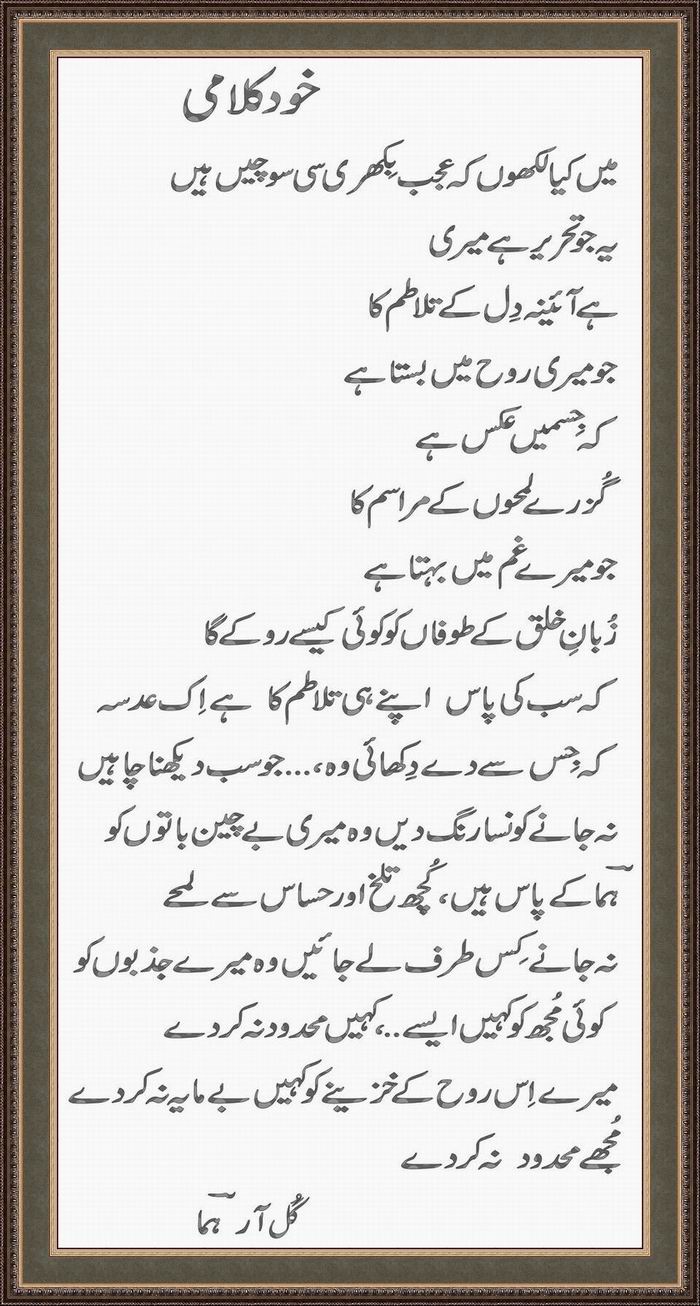 خود کلامی
میں کیا لکھوں کہ عجب بِکھری سی سوچیں ہیں
یہ جو تحریر ہے میری
ہے آئینہ دِل کے تلاطم کا
جو میری روح میں بستا ہے
کہ جِسمیں عکس ہے
گُزرے لمحوں کے مراسم کا
جو میرے غم میں بہتا ہے
زُبانِ خلق کے طوفاں کو کوئی کیسے روکے گا
کہ سب کی پاس اپنے ہی تلاطم کا ہے اِک عدسہ
کہ جِس سے دے دِکھائی وہ،...جو سب دیکھنا چاہیں
نہ جانے کونسا رنگ دیں وہ میری بے چین باتوں کو
ہما کے پاس ہیں، کُچھ تلخ اور حساس سے لمحے
نہ جانے کِس طرف لے جائیں وہ میرے جذبوں کو
کوئی مُجھ کو کہیں ایسے..،کہیں محدود نہ کر دے
میرے اِس روح کے خزینے کو کہیں بے مایہ نہ کر دے
مُجھے محدود نہ کر دے
گُل آر ہما